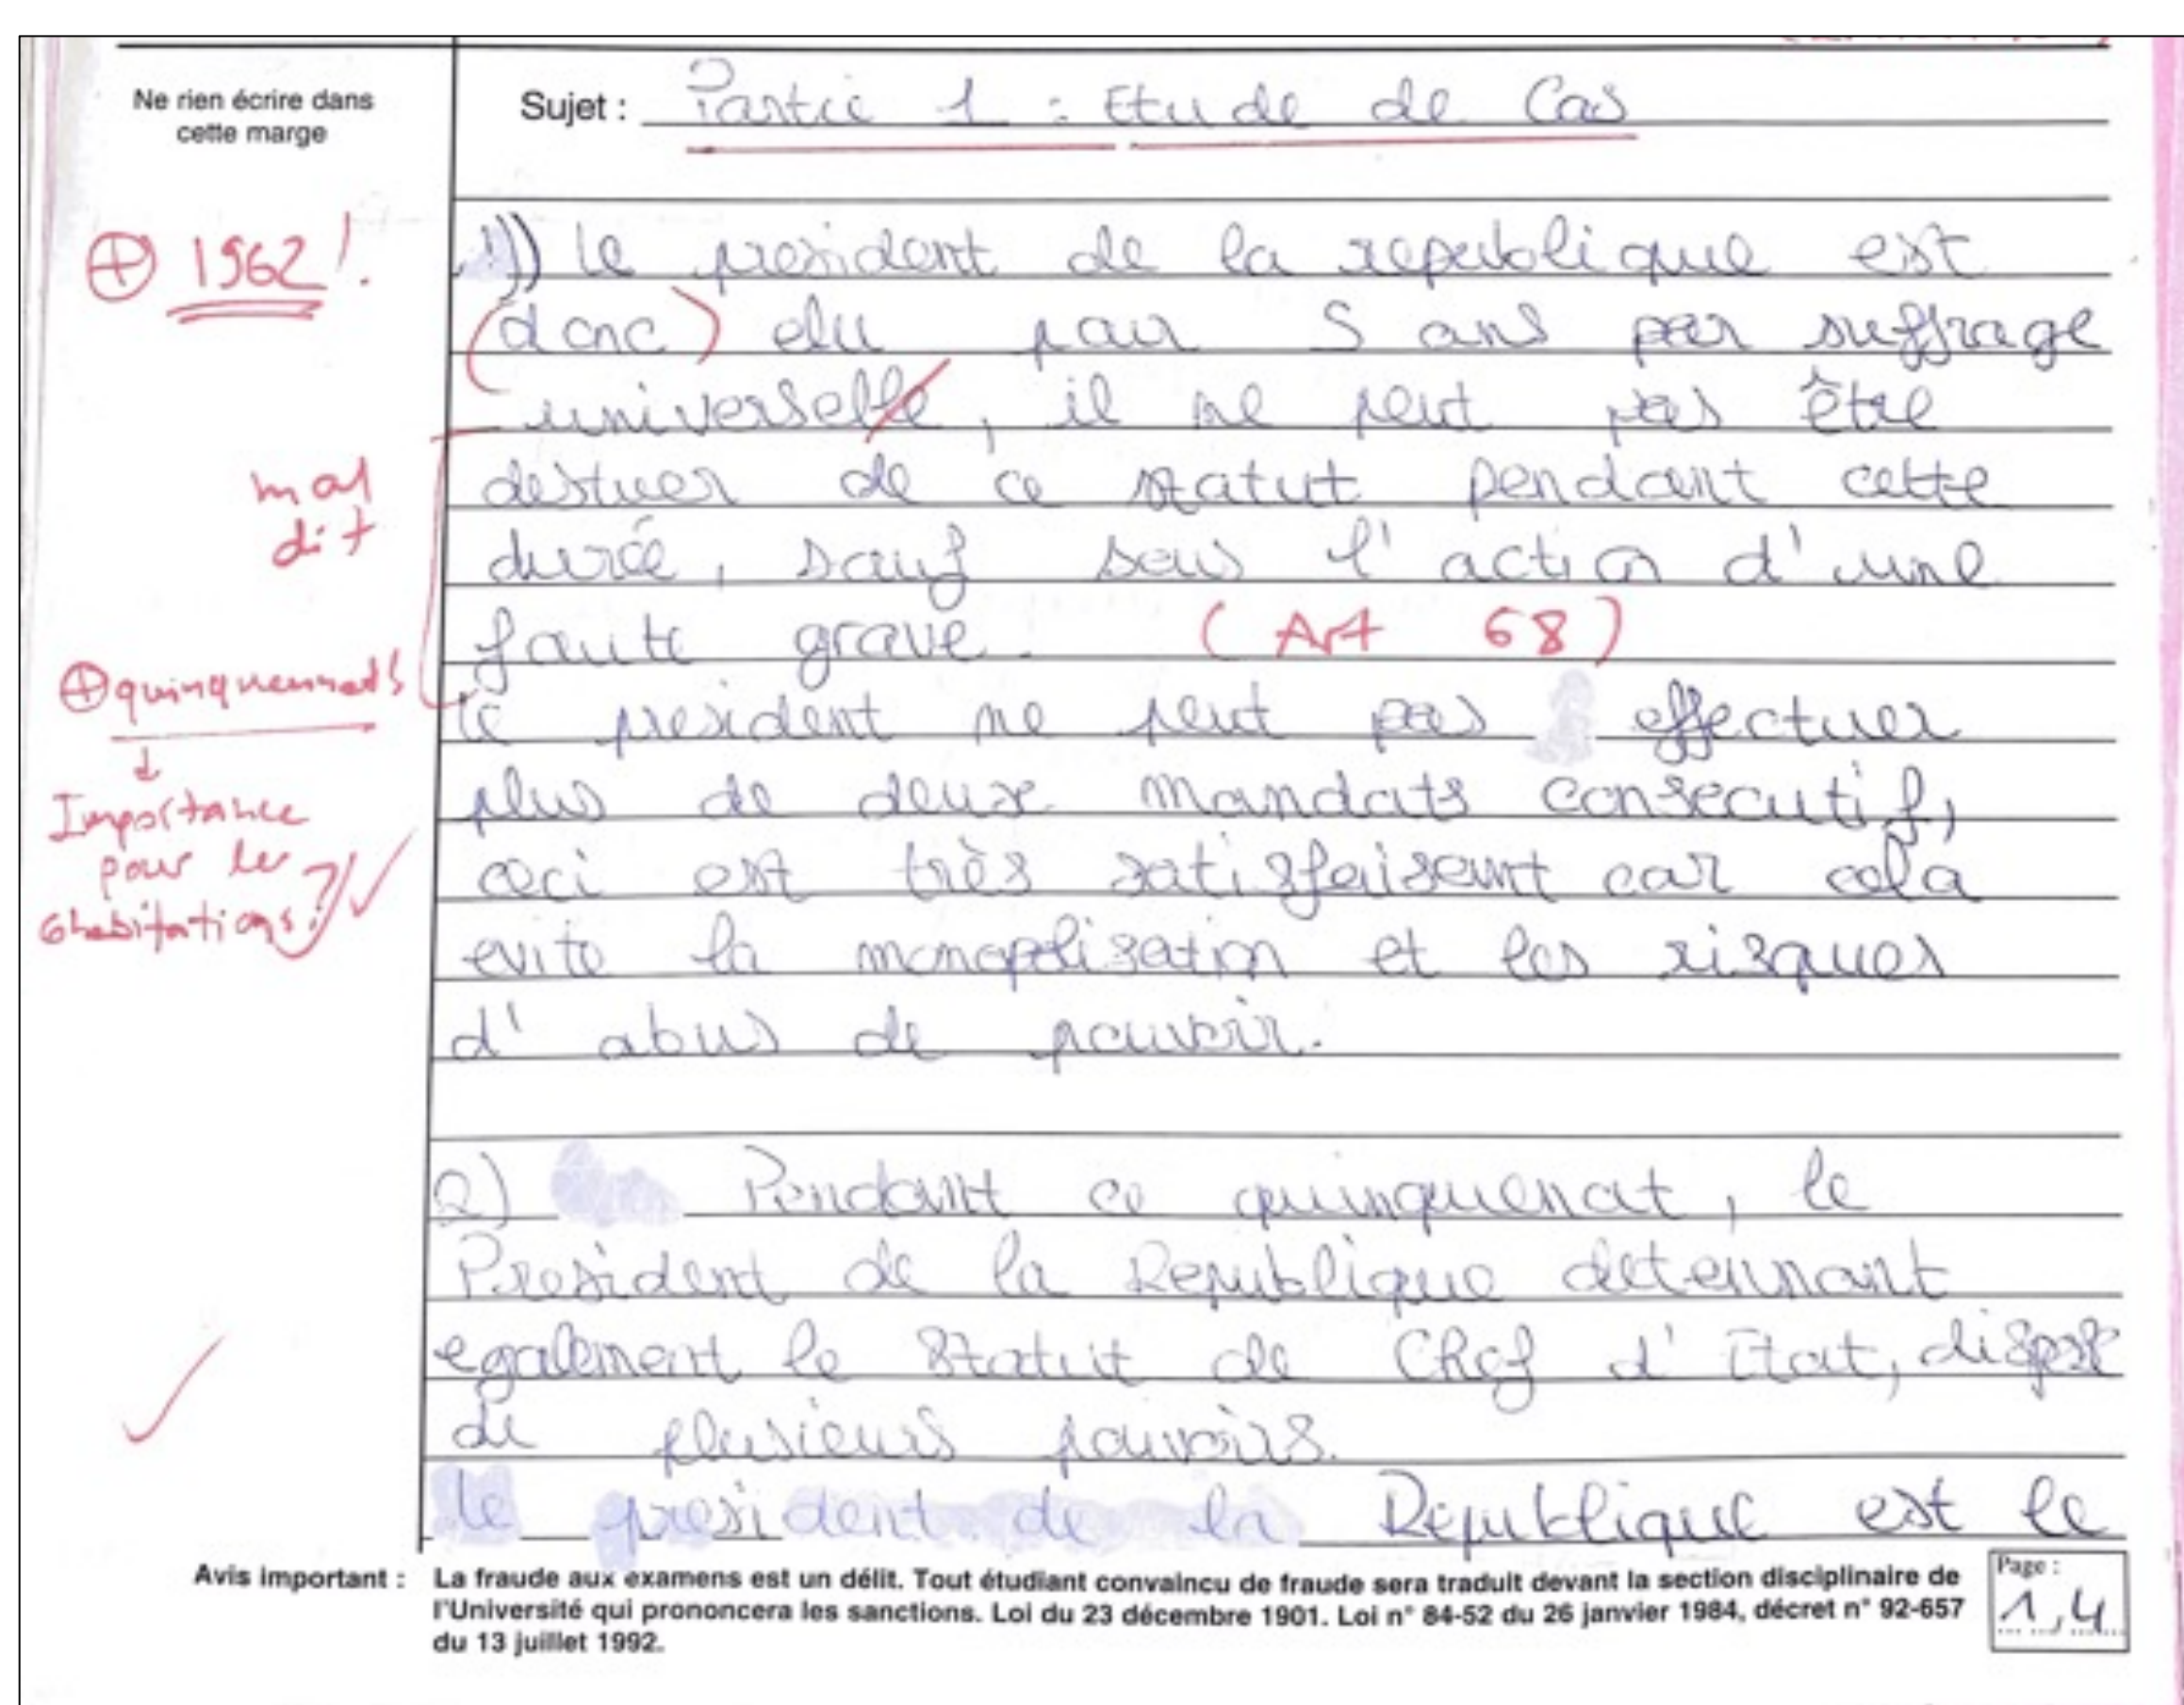 Ne rien écrire dans
cette marge
Sujet : Partie 1 : Etude de Cas
⊕ 1962 !
1)) le president de la republique est
(donc) elu pour 5 ans par suffrage
universelle, il ne peut pas être
mal
dit
destuer de ce statut pendant cette
durée, sauf sous l'action d'une
faute grave. (Art 68)
⊕ quinquennats
↓
Importance
pour les
cohabitations ?
le president ne peut pas effectuer
plus de deux mandats consecutif,
ceci est très satisfaisant car cela
evite la monopolisation et les risques
d'abus de pouvoir.
2) Pendant ce quinquenat, le
President de la Republique detennant
egalement le Statut de Chef d'Etat, dispose
de plusieurs pouvoirs.
le president de la Republique est le
Avis important : La fraude aux examens est un délit. Tout étudiant convaincu de fraude sera traduit devant la section disciplinaire de
l'Université qui prononcera les sanctions. Loi du 23 décembre 1901. Loi n° 84-52 du 26 janvier 1984, décret n° 92-657
du 13 juillet 1992.
Page :
1,4